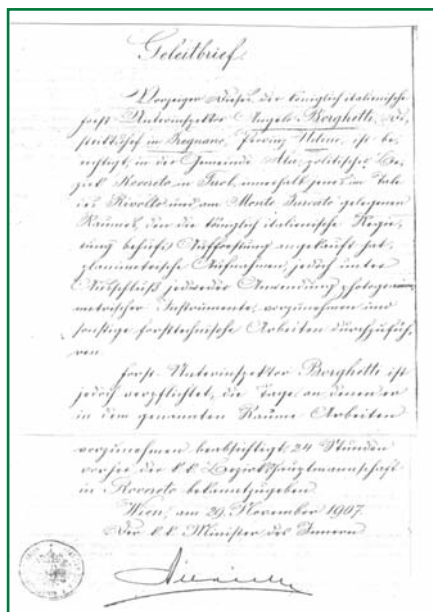 Geleitbrief.
Vorzeiger Dieses, der königlich italienische
Forst-Unterinspektor Angelo Borghetti, Di-
striktschef in Tregnano, Provinz Udine, ist be-
rechtigt, in der Gemeinde Ala, politischer Be-
zirk Rovereto in Tirol, innerhalb jenes im Tale
des Rivolto und am Monte gelegenen
Raumes, den die königlich italienische Regie-
rung behufs Aufforstung angekauft hat,
planimetrische Aufnahmen, jedoch unter
Ausschluß jedweder Anwendung photogram-
metrischer Instrumente, vorzunehmen und
sonstige forsttechnische Arbeiten durchzufüh-
ren.
Forst-Unterinspektor Borghetti ist
jedoch verpflichtet, die Tage, an denen er
in dem genannten Raume Arbeiten
vorzunehmen beabsichtigt, 24 Stunden
vorher der k.k. Bezirkshauptmannschaft
in Rovereto bekanntzugeben.
Wien, am 29. November 1907.
Der k.k. Minister des Innern